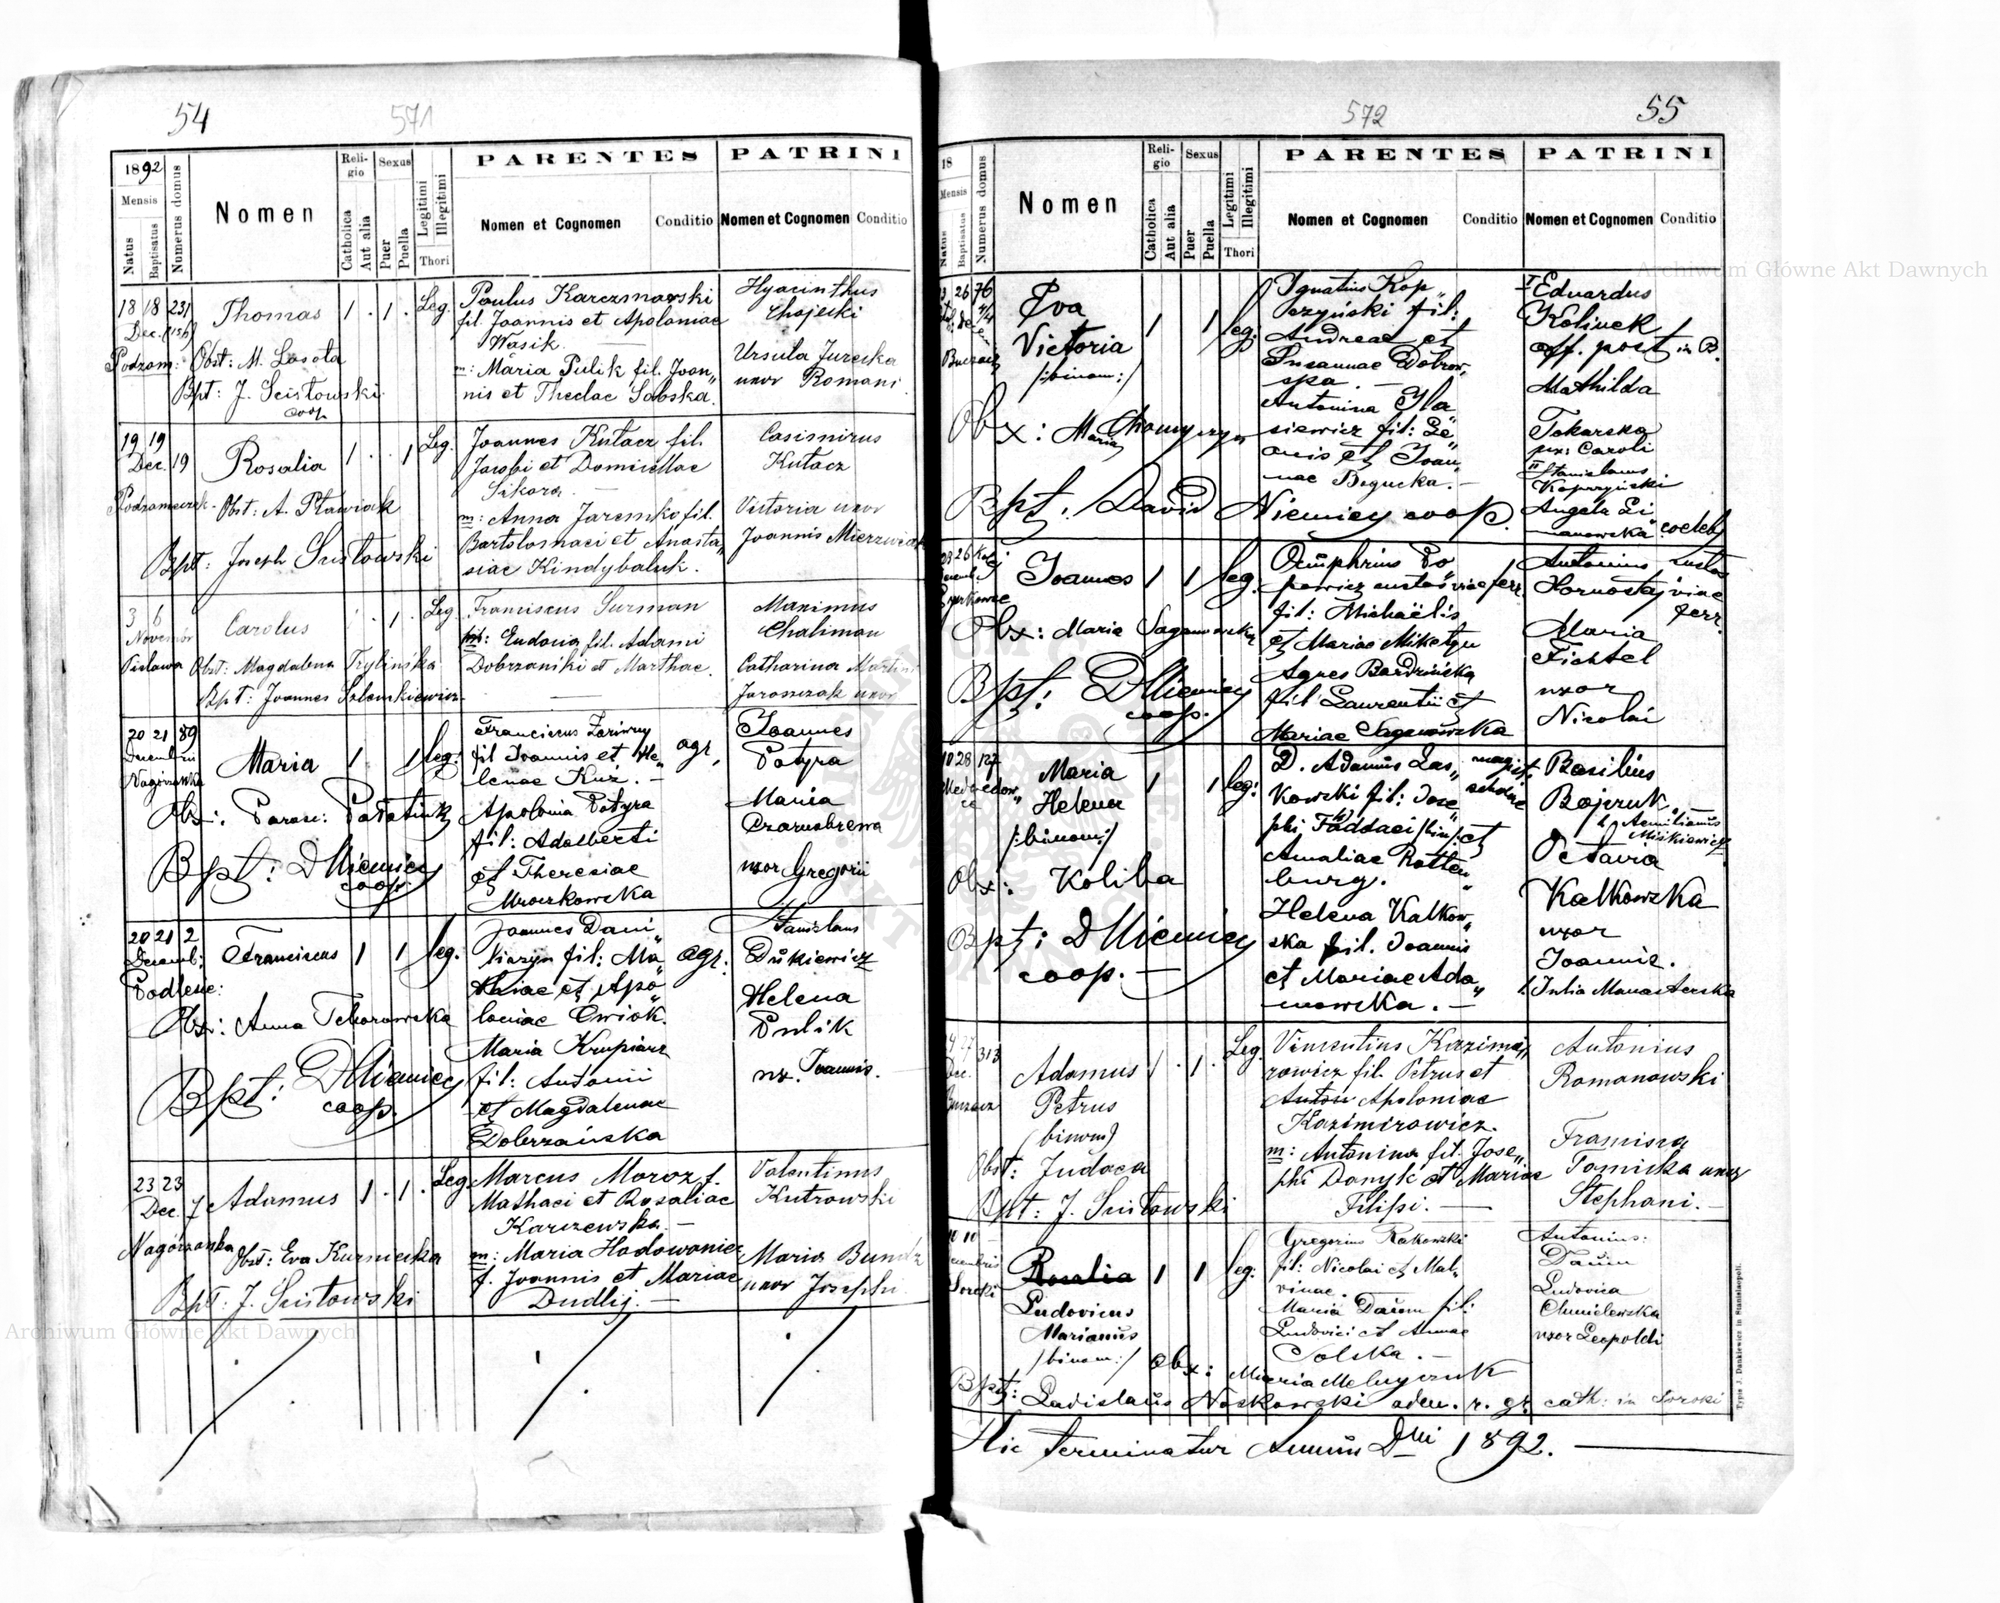 54
571
1892
Mensis
Natus
Baptisatus
Numerus domus
Nomen
Religio
Catholica
Aut alia
Sexus
Puer
Puella
Legitimi
Illegitimi
Thori
PARENTES
Nomen et Cognomen
Conditio
PATRINI
Nomen et Cognomen
Conditio
18 18 231
Dec.
Thomas
1 . 1 . Leg.
Paulus Karczmarski
fil. Joannis et Apoloniae
Wasik.
m: Maria Pulik fil. Joan„
nis et Theclae Sobska.
Hyacinthus
Chojecki
Ursula Jurecka
uxor Romani
Obst: M. Lasota
Bpt: J. Scisłowski
coop
19 19
Dec. 19
Rosalia
1 . . 1 Leg.
Joannes Kutacz fil.
Jacobi et Domicellae
Sikora.
m: Anna Jaremko fil.
Bartolomaei et Anasta„
siae Kindybaluk.
Casimirus
Kutacz
Victoria uxor
Joannis Mierzwiak
Obst: A. Pławiak
Bpt: Joseph Scisłowski
3 6
Novembr
Carolus
1 . 1 . Leg
Franciscus Surman
m: Eudoxia fil. Adami
Dobrzanski et Marthae.
Maximus
Chaliman
Catharina Martini
uxor
Obst: Magdalena Trylińska
Bpt: Joannes Szlamkiewicz
20 21 89
Decembris
Nagórzanka
Maria
1 1 leg:
fil Joannis et He„
lenae Kuz. —
agr.
Apolonia Potyra
fil: Adalberti
et Theresiae
Mroczkowska
Joannes
Potyra
Maria
uxor Gregorii
Bpt: D Niemiec
coop.
20 21 2
Decemb:
Podlesie:
Franciscus
1 1 leg.
Joannes Dani„
fil: Ma„
thiae et Apo„
loniae Cwiok.
agr.
Maria Krupiarz
fil: Antonii
et Magdalenae
Dobrzańska
Stanislaus
Dutkiewicz
Helena
Pulik
ux. Joannis.
Obx: Anna Tchorowska
Bpt: D Niemiec
coop.
23 23
Dec. 7
Nagórzanka
Adamus
1 . 1 . Leg
Marcus Moroz f.
Mathaei et Rosaliae
Karczewska. —
m: Maria Hadowaniec
f. Joannis et Mariae
Dudlij. —
Valentinus
Kutrowski
Maria
uxor Josephi
Obst: Eva Kurnicka
Bpt: J. Scisłowski
572
55
18
Mensis
Natus
Baptisatus
Numerus domus
Nomen
Religio
Catholica
Aut alia
Sexus
Puer
Puella
Legitimi
Illegitimi
Thori
PARENTES
Nomen et Cognomen
Conditio
PATRINI
Nomen et Cognomen
Conditio
26 76
Eva
Victoria
/:binom:/
1 1 leg.
Ignatius Kop„
czyński fil:
Andreae et
Susannae Dobrow„
ska. —
Antonina
siewicz fil:
et Joan„
nae Bogucka. —
I Eduardus
Kolinek
off. post in B.
Mathilda
Tokarska
ux: Caroli
II Stanislaus
Kopczyński
Angela Li
manowska coelebs
Obx: Maria
Bpt. David Niemiec coop.
Joannes
1 1 leg.
Onuphrius Po„
powicz custos viae ferr.
fil: Michaëlis
et Mariae
Agnes Bardzińska
fil Laurentii et
Mariae Saganowska
Antonius custos
Hornostaj viae
ferr.
Maria
Fichtel
uxor
Nicolai
Obx: Maria Saganowska
Bpt: D Niemiec
coop.
28 127
Maria
Helena
/:binom:/
1 1 leg:
D. Adamus Las„
kowski fil: Jose„
phi Taddaei /:bin:/ et
Amaliae Rotten„
burg.
Helena Kalkow„
ska fil. Joannis
et Mariae Ada„
mowska. —
magist.
scholae
Basilius
Bojczuk
Aemilianus
Miskiewicz
Octavia
Kalkowska
uxor
Joannis.
Julia Manasterska
Obx: Koliba
Bpt: D Niemiec
coop. —
313
Dec.
Adamus
Petrus
(binom)
1 . 1 . Leg.
Vincentius Kazimi„
rowicz fil. Petrus et
Apoloniae
Kazimirowicz.
m: Antonina fil. Jose„
phi Danyk et Mariae
Filipi. —
Antonius
Romanowski
Francisca
Tomicka uxor
Stephani. —
Obst: Judaea
Bpt: J. Scisłowski
10 10
Rosalia
Ludovicus
Marianus
/binom:/
1 1 leg:
Gregorius Rakowski
fil: Nicolai et Mal„
vinae.
Maria Daum fil:
Ludovici et Annae
Solska. —
Antonius:
Daum
Ludovica
Chmielewska
uxor Leopoldi
Obx: Maria Melnyczuk
Bpt: Ladislaus Noskowski adm. r. gr. cath: in Soroki
Hic terminatur Annus Dni 1892. —
Archiwum Główne Akt Dawnych
Archiwum Główne Akt Dawnych